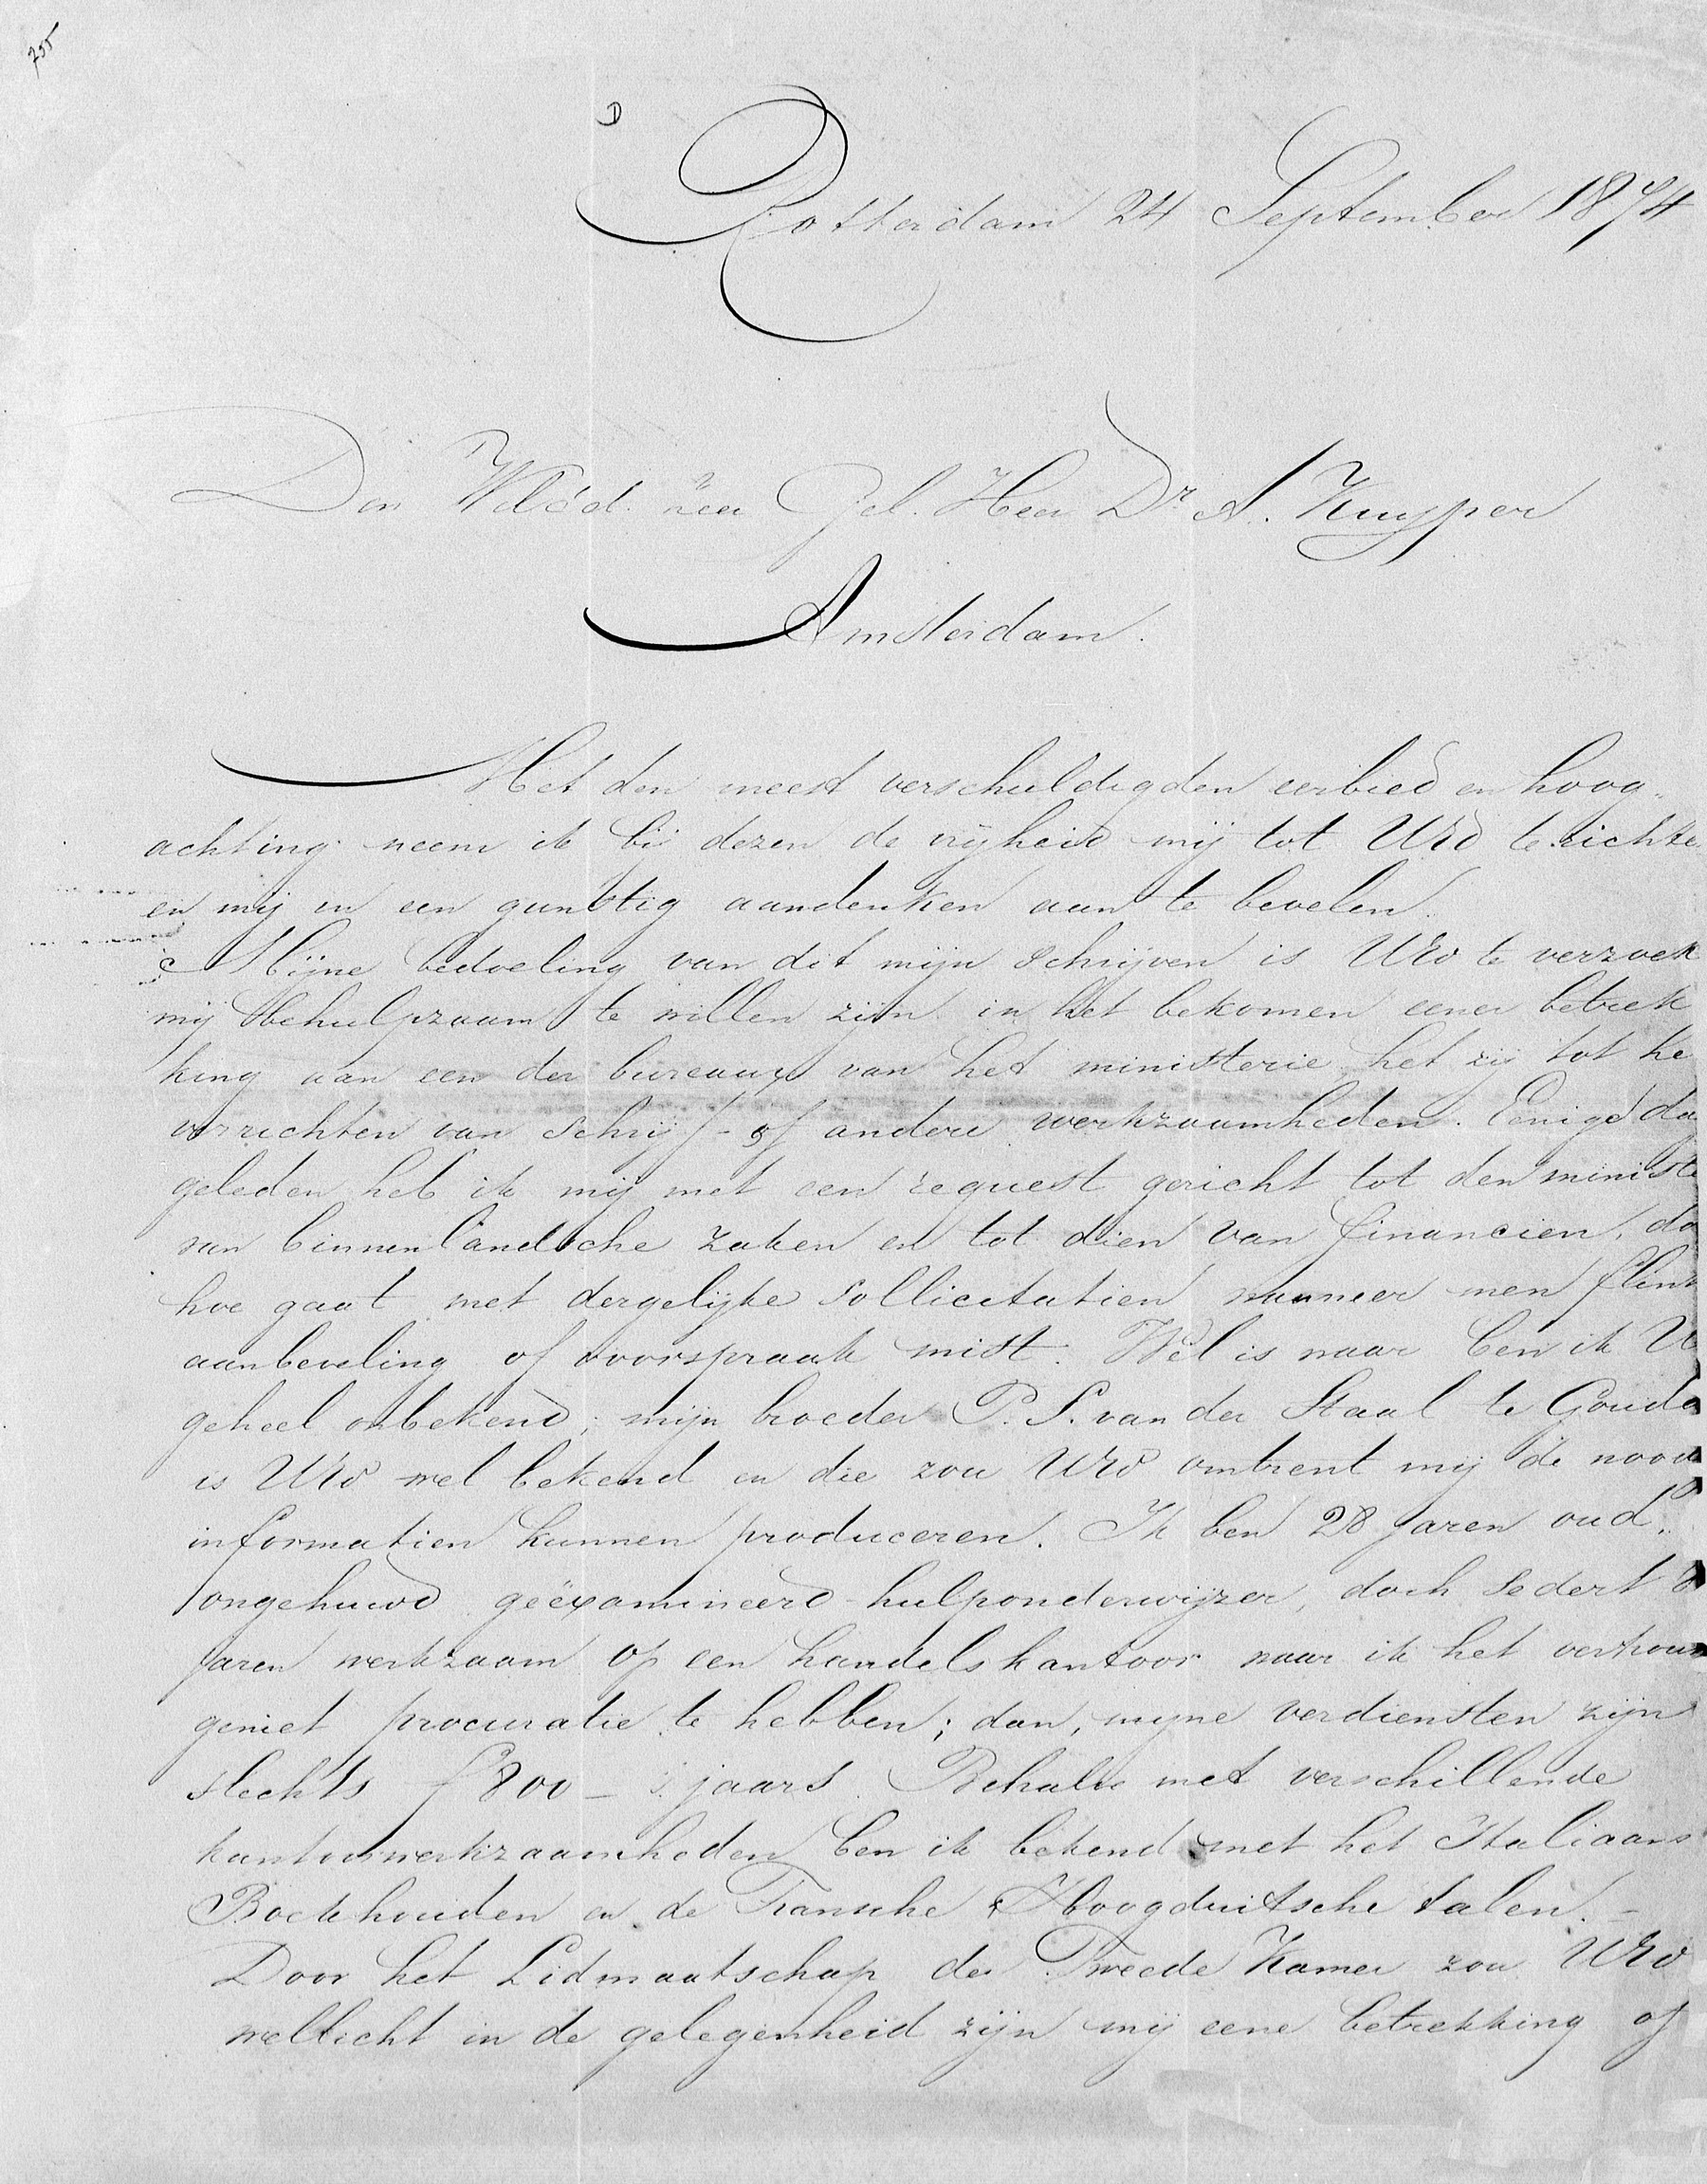 735
D
Rotterdam 24 September 1874
Den WelEd. Zeer Gel. Heer Dr A. Kuyper
Amsterdam.
Met den meest verschuldigden eerbied en hoog-
achting neem ik bij dezen de vrijheid mij tot UEd te richte
en mij in een gunstig aandenken aan te bevelen.
Mijne bedoeling van dit mijn schrijven is UEd te verzoek
mij behulpzaam te willen zijn in het bekomen eener betrek
king aan een der bureaux van het ministerie het zij tot he
verrichten van schrijf- of andere werkzaamheden. Eenige da
geleden heb ik mij met een request gericht tot den ministe
van binnenlandsche zaken en tot dien van financien, do
hoe gaat met dergelijke sollicitatien wanneer men flink
aanbeveling of voorspraak mist. Wel is waar ben ik U
geheel onbekend; mijn broeder P. S. van der Staal te Gouda
is UEd wel bekend en die zou UEd omtrent mij de nood
informatien kunnen produceren. Ik ben 28 jaren oud,
ongehuwd geëxamineerd hulponderwijzer, doch sedert
jaren werkzaam op een handelskantoor waar ik het vertrouw
geniet procuratie te hebben; dan, mijne verdiensten zijn
slechts f 800 - 's jaars. Behalve met verschillende
kantoorwerkzaamheden ben ik bekend met het Italiaans
Boekhouden en de Fransche & Hoogduitsche talen. -
Door het Lidmaatschap der Tweede Kamer zou UEd
wellicht in de gelegenheid zijn mij eene betrekking of